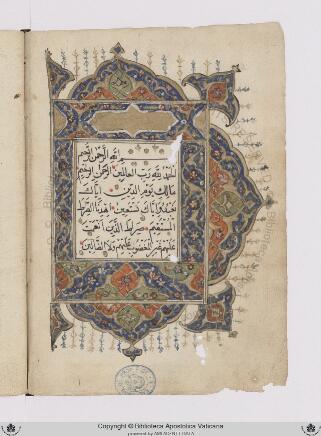 بسم الله الرحمن الرحيم
الحمد لله رب العالمين الرحمن الرحيم
مالك يوم الدين اياك
نعبد واياك نستعين اهدنا الصراط
المستقيم صراط الذين انعمت
عليهم غير المغضوب عليهم ولا الضالين
Copyright © Biblioteca Apostolica Vaticana